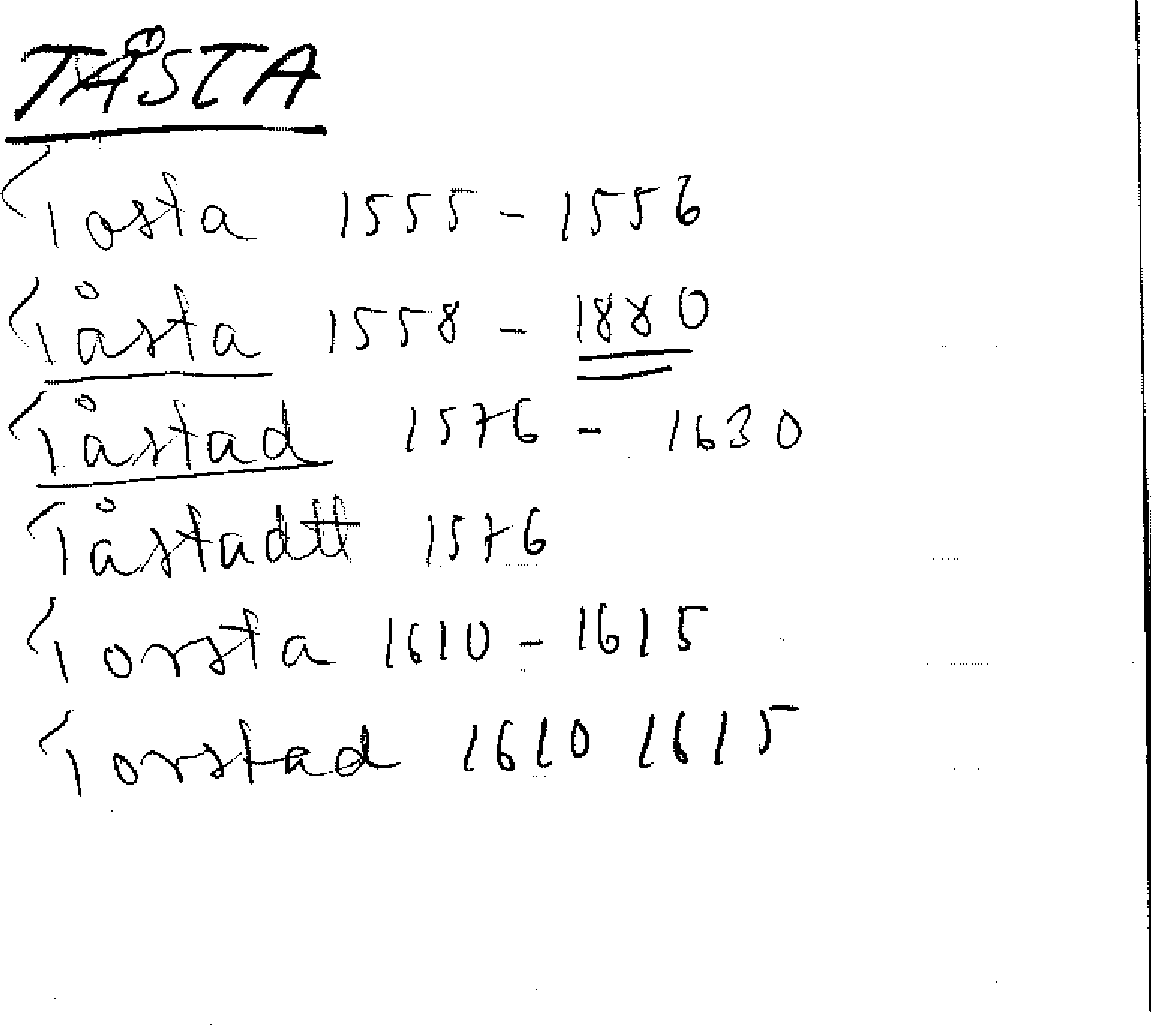 TÅSTA
Tosta 1555 - 1556
Tåsta 1558 - 1880
Tåstad 1576 - 1630
Tåstadtt 1576
Torsta 1610 - 1615
Torstad 1610 1615